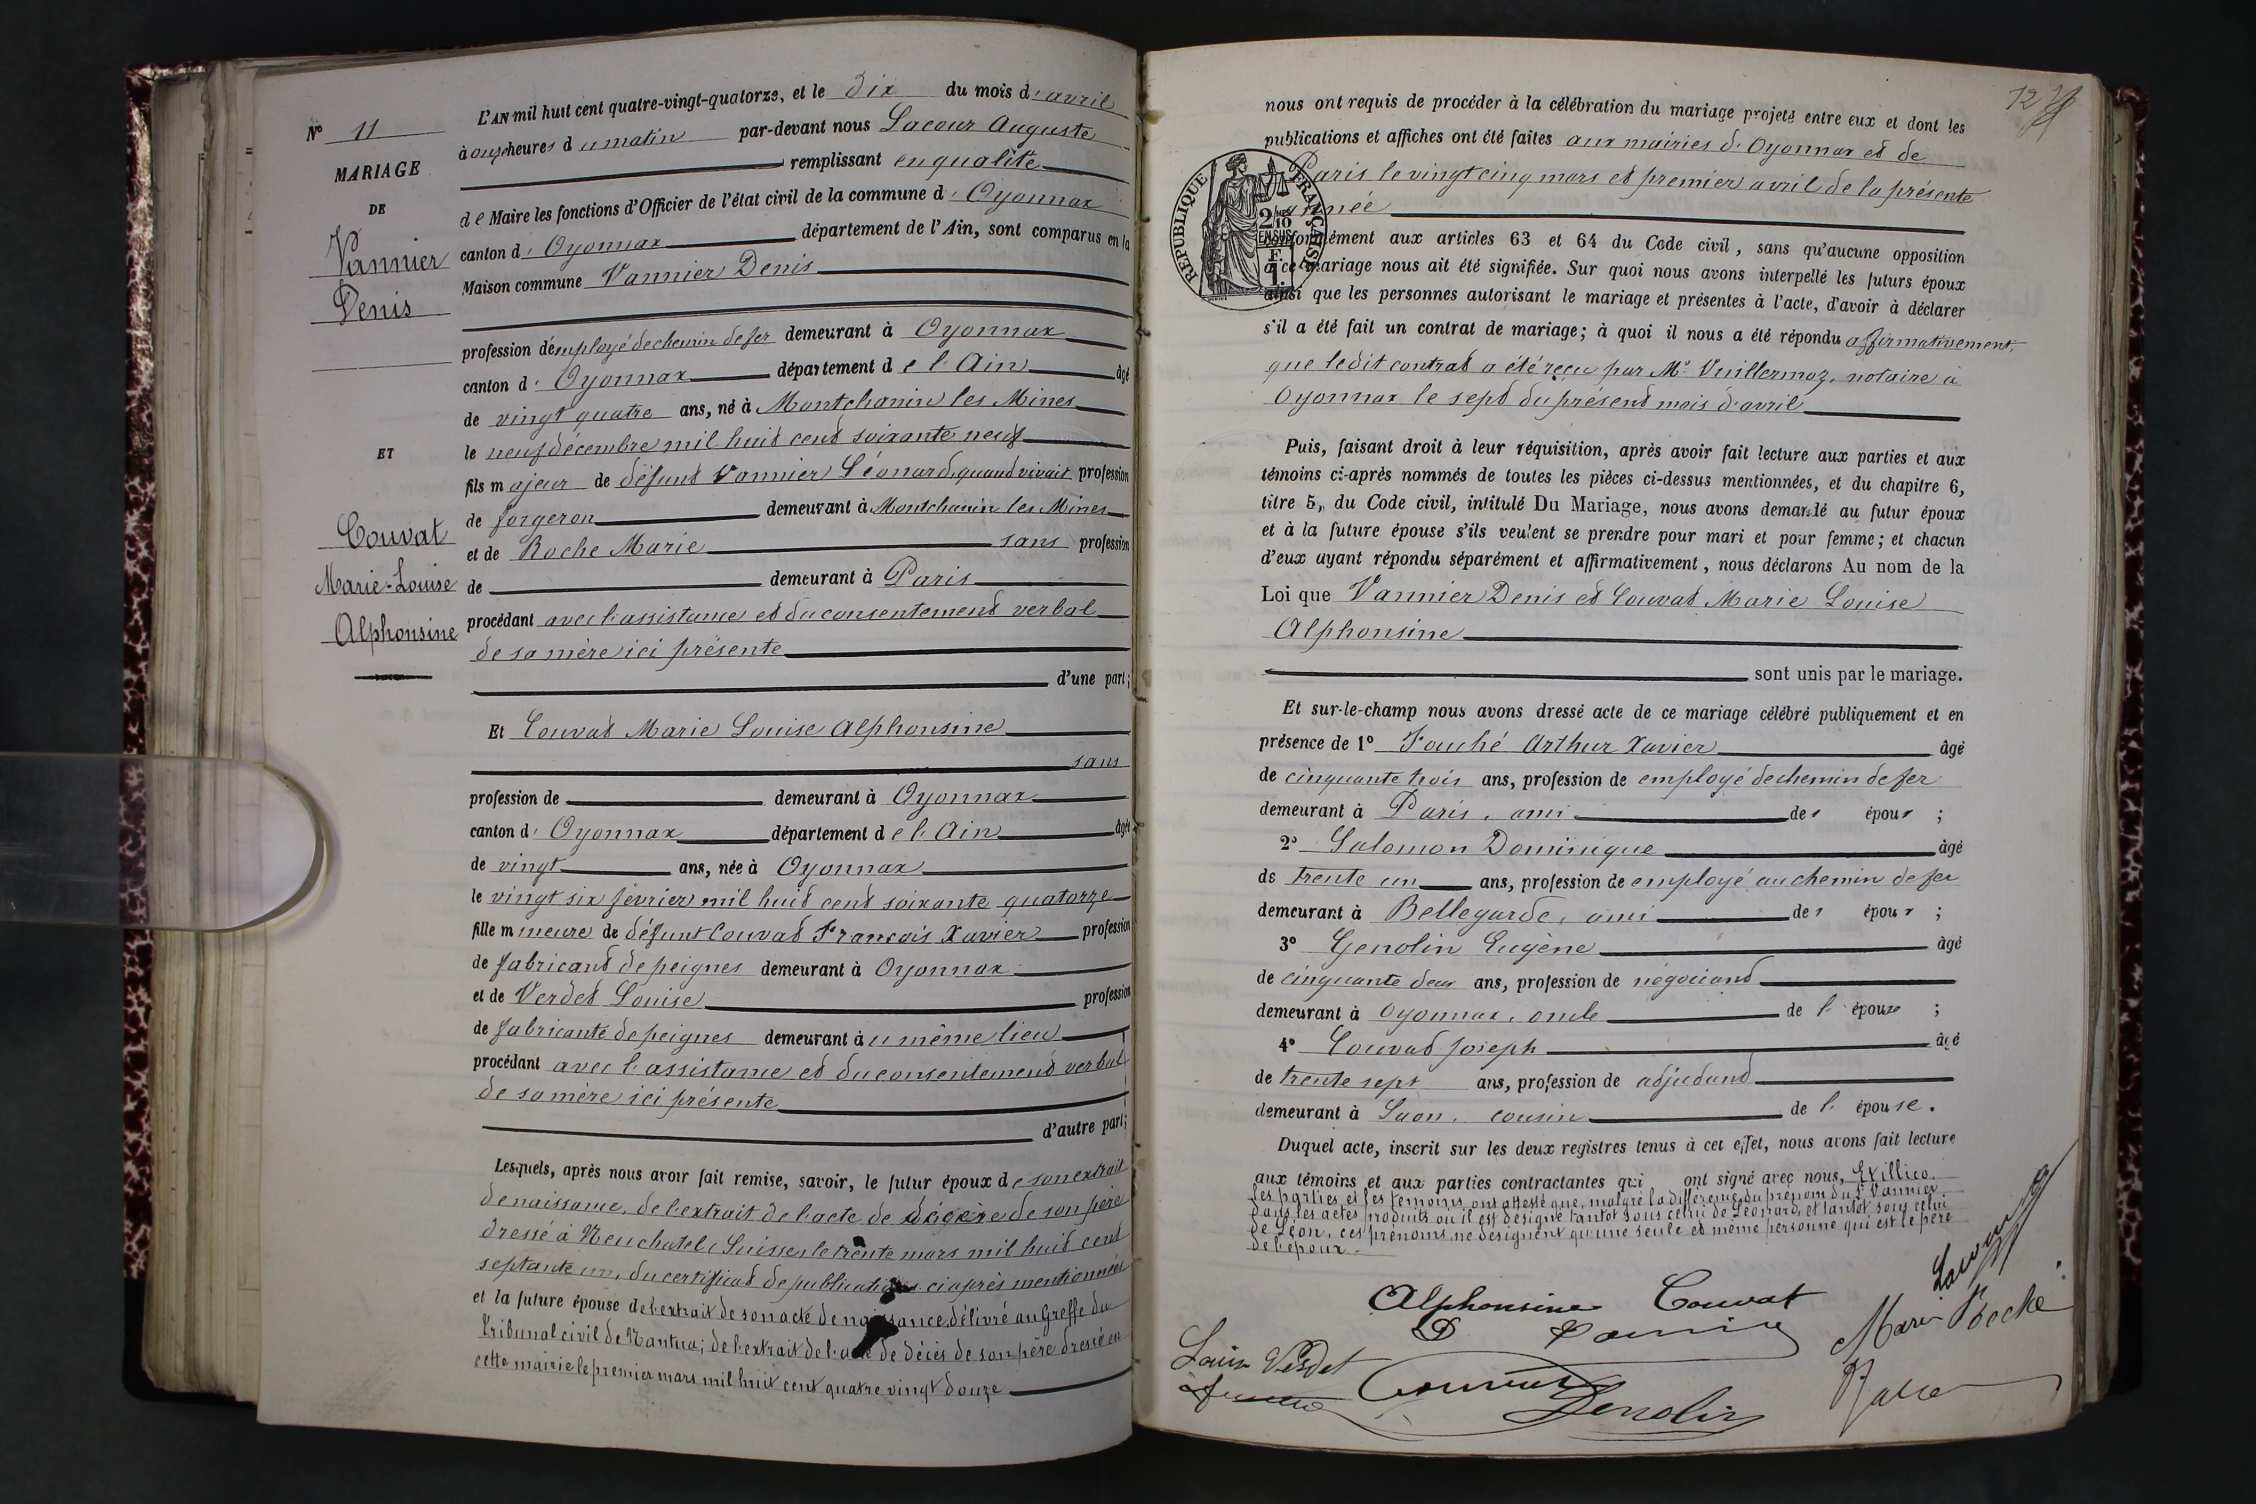 N° 11
MARIAGE
DE
Vannier
Denis
ET
Couvat
Marie-Louise
Alphonsine
L'AN mil huit cent quatre-vingt-quatorze, et le dix du mois d'avril
à onze heures du matin par-devant nous Lacour Auguste
remplissant en qualité
de Maire les fonctions d'Officier de l'état civil de la commune d'Oyonnax
canton d'Oyonnax département de l'Ain, sont comparus en la
Maison commune Vannier Denis
profession d'employé de chemin de fer demeurant à Oyonnax
canton d'Oyonnax département de l'Ain âgé
de vingt quatre ans, né à Montchanin les Mines
le neuf décembre mil huit cent soixante neuf
fils majeur de défunt Vannier Léonard, quand vivait profession
de forgeron demeurant à Montchanin les Mines
et de Roche Marie sans profession
de demeurant à Paris
procédant avec l'assistance et du consentement verbal
de sa mère ici présente
d'une part;
Et Couvat Marie Louise Alphonsine
sans
profession de demeurant à Oyonnax
canton d'Oyonnax département de l'Ain âgée
de vingt ans, née à Oyonnax
le vingt six février mil huit cent soixante quatorze
fille mineure de défunt Couvat François Xavier profession
de fabricant de peignes demeurant à Oyonnax
et de Verdet Louise profession
de fabricante de peignes demeurant au même lieu
procédant avec l'assistance et du consentement verbal
de sa mère ici présente
d'autre part;
Lesquels, après nous avoir fait remise, savoir, le futur époux de son extrait
de naissance, de l'extrait de l'acte de décès de son père
dressé à Neuchatel, Suisse, le trente mars mil huit cent
septante un, du certificat de publications ci après mentionnées
et la future épouse de l'extrait de son acte de naissance, délivré au Greffe du
Tribunal civil de Nantua; de l'extrait de l'acte de décès de son père dressé en
cette mairie le premier mars mil huit cent quatre vingt douze
12
nous ont requis de procéder à la célébration du mariage projeté entre eux et dont les
publications et affiches ont été faites aux mairies d'Oyonnax et de
Paris le vingt cinq mars et premier avril de la présente
année
RÉPUBLIQUE FRANÇAISE
2/10
EN SUS
F.
1.
conformément aux articles 63 et 64 du Code civil, sans qu'aucune opposition
à ce mariage nous ait été signifiée. Sur quoi nous avons interpellé les futurs époux
ainsi que les personnes autorisant le mariage et présentes à l'acte, d'avoir à déclarer
s'il a été fait un contrat de mariage; à quoi il nous a été répondu affirmativement,
que ledit contrat a été reçu par Me Vuillermoz, notaire à
Oyonnax le sept du présent mois d'avril
Puis, faisant droit à leur réquisition, après avoir fait lecture aux parties et aux
témoins ci-après nommés de toutes les pièces ci-dessus mentionnées, et du chapitre 6,
titre 5, du Code civil, intitulé Du Mariage, nous avons demandé au futur époux
et à la future épouse s'ils veulent se prendre pour mari et pour femme; et chacun
d'eux ayant répondu séparément et affirmativement, nous déclarons Au nom de la
Loi que Vannier Denis et Couvat Marie Louise
Alphonsine
sont unis par le mariage.
Et sur-le-champ nous avons dressé acte de ce mariage célébré publiquement et en
présence de 1° Fouché Arthur Xavier âgé
de cinquante trois ans, profession de employé de chemin de fer
demeurant à Paris, ami des époux;
2° Salomon Dominique âgé
de trente un ans, profession de employé au chemin de fer
demeurant à Bellegarde, ami des époux;
3° Genolin Eugène âgé
de cinquante deux ans, profession de négociant
demeurant à Oyonnax, oncle de l'épouse;
4° Couvat Joseph âgé
de trente sept ans, profession de adjudant
demeurant à Laon, cousin de l'épouse.
Duquel acte, inscrit sur les deux registres tenus à cet effet, nous avons fait lecture
aux témoins et aux parties contractantes qui ont signé avec nous, Et illico,
les parties et les témoins ont attesté que, malgré la différence du prénom du Sr Vannier
dans les actes produits où il est désigné tantôt sous celui de Léonard, et tantôt sous celui
de Léon, ces prénoms ne désignent qu'une seule et même personne qui est le père
de l'époux.
Lacour
Alphonsine Couvat
D Vannier
Marie Roche
Louise Verdet
Couvat
Genolin